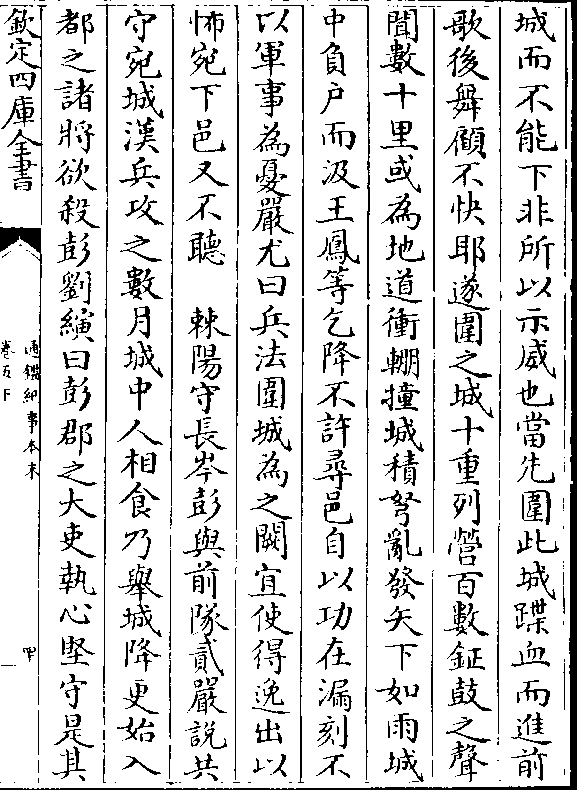 城而不能下非所以示威也當先圍此城蹀血而進前
歌後舞顧不快耶遂圍之城十重列營百數鉦鼓之聲
聞數十里或為地道衝輣撞城積弩亂發矢下如雨城
中負户而汲王鳳等乞降不許尋邑自以功在漏刻不
以軍事為憂嚴尤曰兵法圍城為之闕宜使得逸出以
怖宛下邑又不聽　棘陽守長岑彭與前隊貳嚴說共
守宛城漢兵攻之數月城中人相食乃舉城降更始入
都之諸將欲殺彭劉縯曰彭郡之大吏執心堅守是其
欽定四庫全書
通鑑紀事本末
卷五下